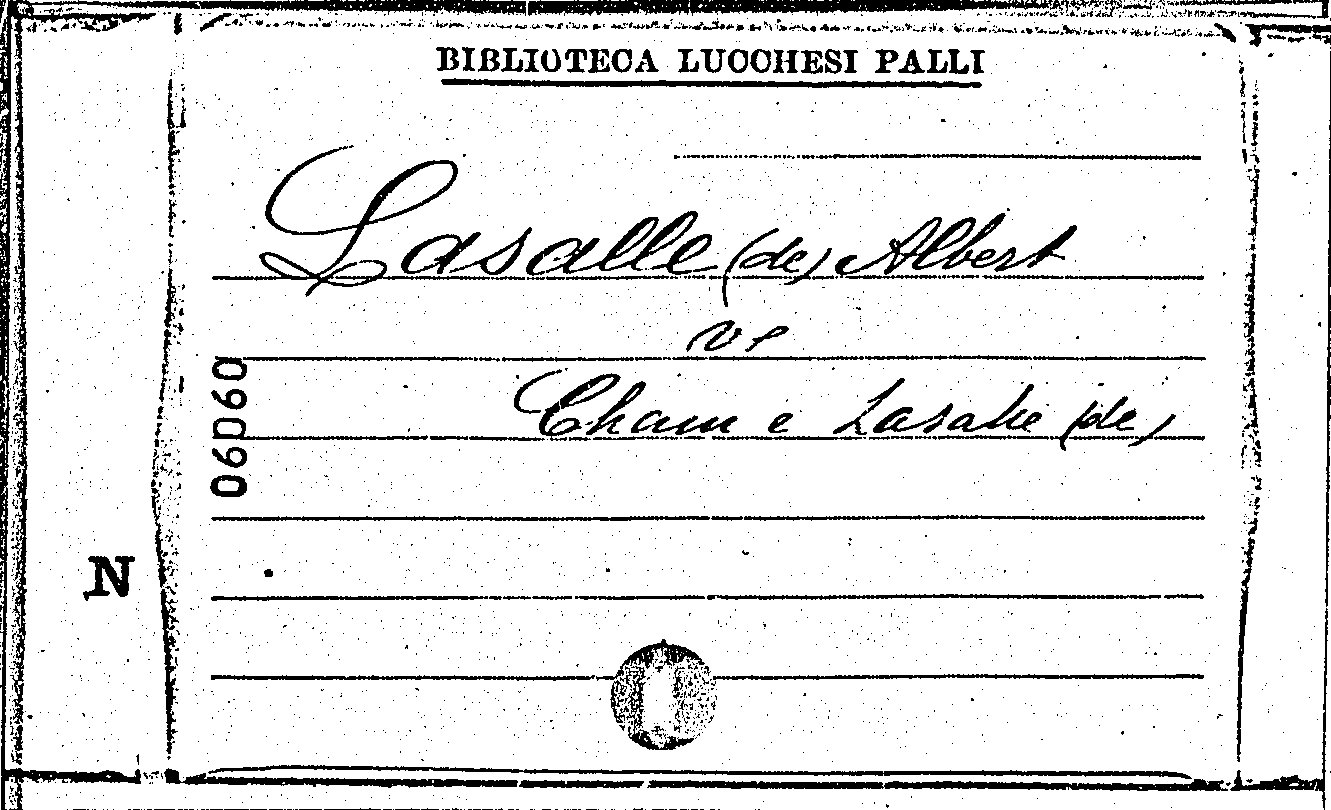 BIBLIOTECA LUCCHESI PALLI
Lasalle (de) Albert
ve
Cham e Lasalle (de)
06060
N